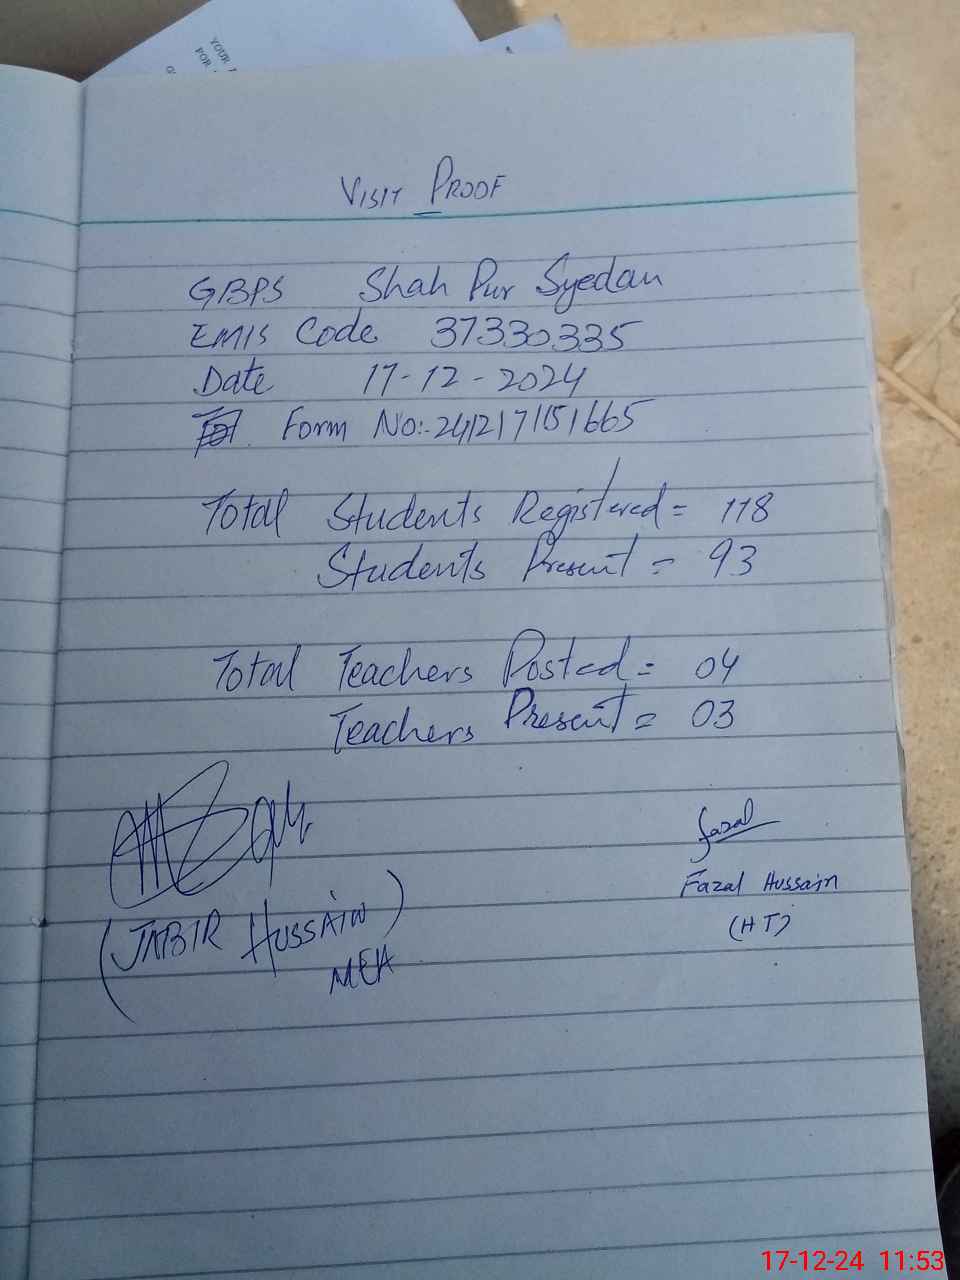 YOUR
FOR
VISIT PROOF
GBPS Shah Pur Syedan
EMIS Code 37330335
Date 17-12-2024
Form No:- 241217151665
Total Students Registered = 118
Students Present = 93
Total Teachers Posted = 04
Teachers Present = 03
fazal
Fazal Hussain
(HT)
(JABIR HUSSAIN)
MEA
17-12-24 11:53